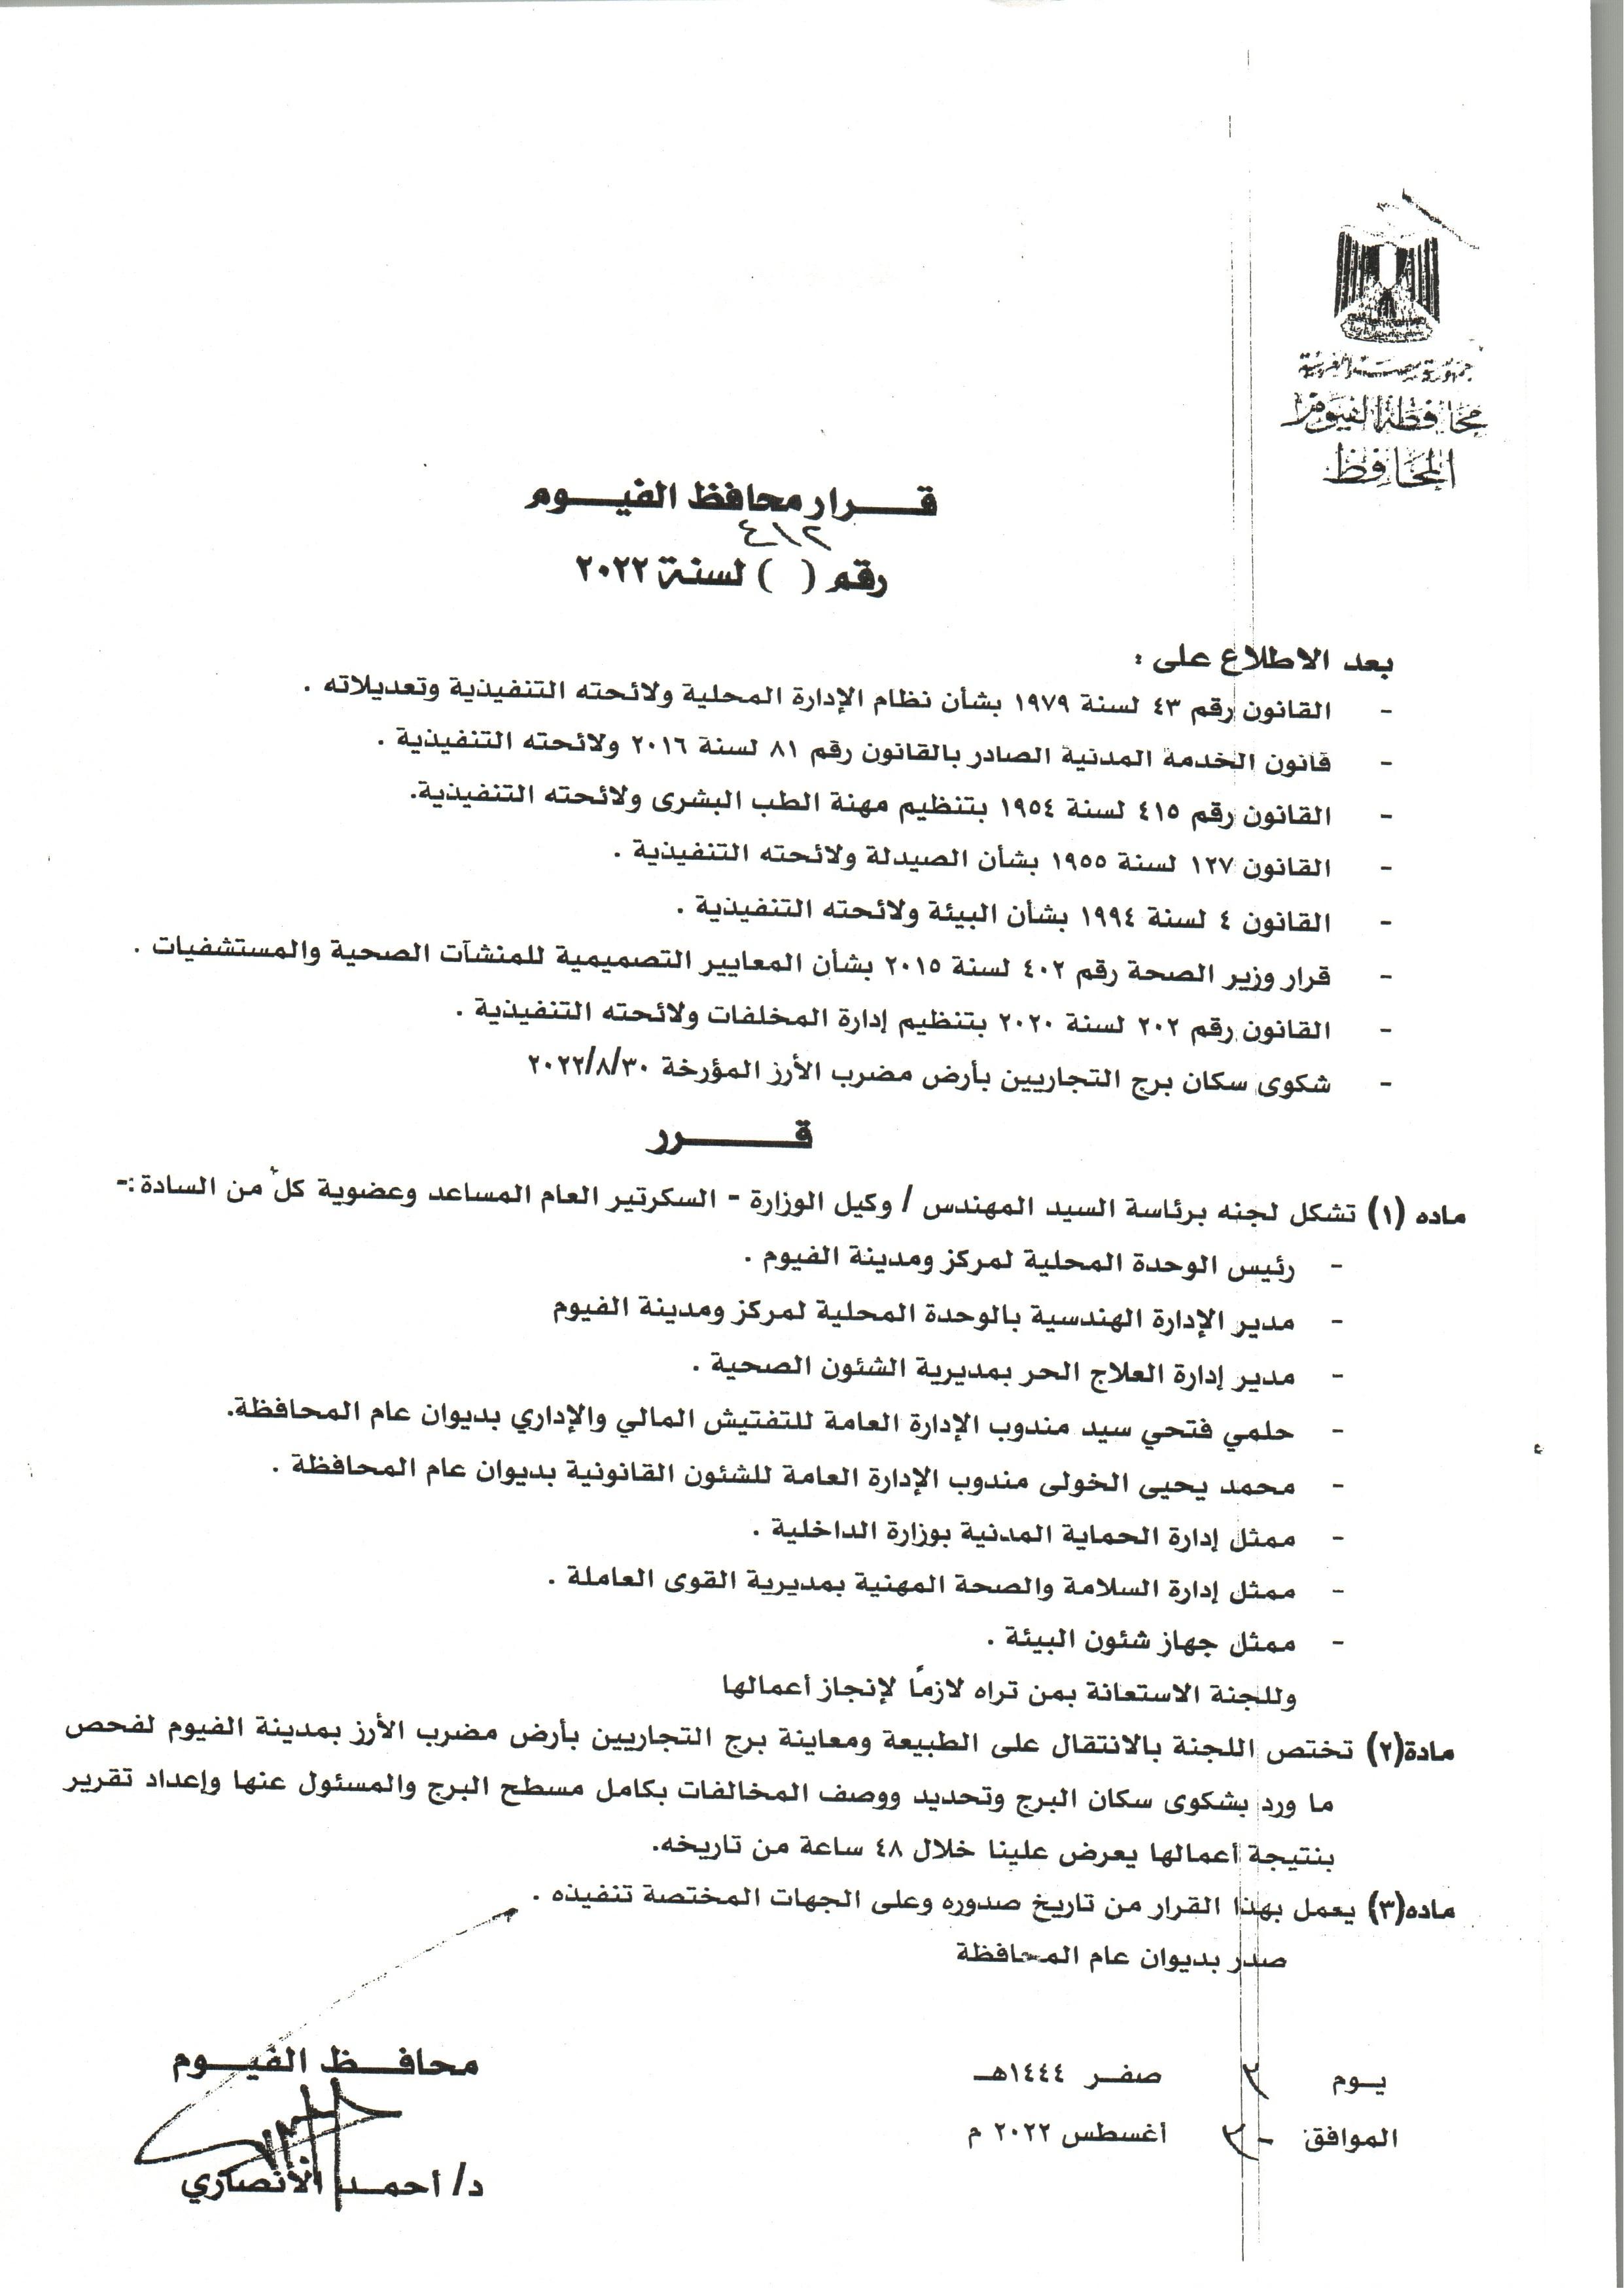 جمهورية مصر العربية
محافظة الفيوم
المحافظ
قرار محافظ الفيوم
٤١٢
رقم ( ) لسنة ٢٠٢٢
بعد الاطلاع على :
- القانون رقم ٤٣ لسنة ١٩٧٩ بشأن نظام الإدارة المحلية ولائحته التنفيذية وتعديلاته .
- قانون الخدمة المدنية الصادر بالقانون رقم ٨١ لسنة ٢٠١٦ ولائحته التنفيذية .
- القانون رقم ٤١٥ لسنة ١٩٥٤ بتنظيم مهنة الطب البشرى ولائحته التنفيذية.
- القانون ١٢٧ لسنة ١٩٥٥ بشأن الصيدلة ولائحته التنفيذية .
- القانون ٤ لسنة ١٩٩٤ بشأن البيئة ولائحته التنفيذية .
- قرار وزير الصحة رقم ٤٠٢ لسنة ٢٠١٥ بشأن المعايير التصميمية للمنشآت الصحية والمستشفيات .
- القانون رقم ٢٠٢ لسنة ٢٠٢٠ بتنظيم إدارة المخلفات ولائحته التنفيذية .
- شكوى سكان برج التجاريين بأرض مضرب الأرز المؤرخة ٢٠٢٢/٨/٣٠
قرر
ماده (١) تشكل لجنه برئاسة السيد المهندس / وكيل الوزارة - السكرتير العام المساعد وعضوية كلٌ من السادة :-
- رئيس الوحدة المحلية لمركز ومدينة الفيوم .
- مدير الإدارة الهندسية بالوحدة المحلية لمركز ومدينة الفيوم
- مدير إدارة العلاج الحر بمديرية الشئون الصحية .
- حلمي فتحي سيد مندوب الإدارة العامة للتفتيش المالي والإداري بديوان عام المحافظة.
- محمد يحيى الخولى مندوب الإدارة العامة للشئون القانونية بديوان عام المحافظة .
- ممثل إدارة الحماية المدنية بوزارة الداخلية .
- ممثل إدارة السلامة والصحة المهنية بمديرية القوى العاملة .
- ممثل جهاز شئون البيئة .
وللجنة الاستعانة بمن تراه لازماً لإنجاز أعمالها
مادة(٢) تختص اللجنة بالانتقال على الطبيعة ومعاينة برج التجاريين بأرض مضرب الأرز بمدينة الفيوم لفحص
ما ورد بشكوى سكان البرج وتحديد ووصف المخالفات بكامل مسطح البرج والمسئول عنها وإعداد تقرير
بنتيجة أعمالها يعرض علينا خلال ٤٨ ساعة من تاريخه.
ماده(٣) يعمل بهذا القرار من تاريخ صدوره وعلى الجهات المختصة تنفيذه .
صدر بديوان عام المحافظة
يوم ٢ صفر ١٤٤٤هـ
الموافق ٣٠ أغسطس ٢٠٢٢ م
محافظ الفيوم
د/ احمد الأنصاري